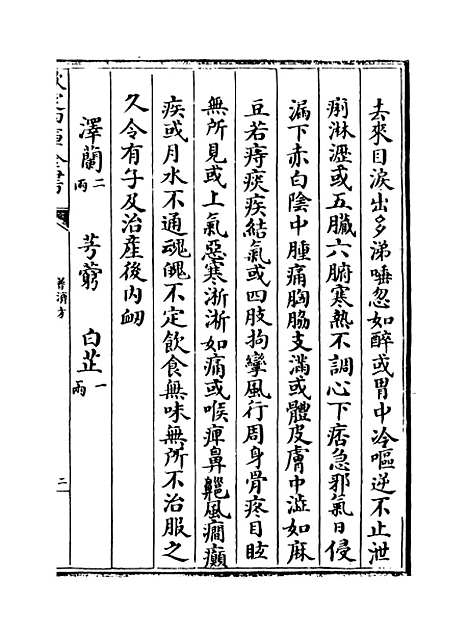 去來目淚出多涕唾忽如醉或胃中冷嘔逆不止泄
痢淋瀝或五臟六腑寒熱不調心下痞急邪氣日侵
漏下赤白陰中腫痛胸脇支滿或體皮膚中澁如麻
豆若痔痰疾結氣或四肢拘攣風行周身骨疼目眩
無所見或上氣惡寒淅淅如痛或喉痺鼻齆風癇癲
疾或月水不通魂魄不定飲食無味無所不治服之
久令有子及治產後內衂
澤蘭二兩 芎藭 白芷一兩
欽定四庫全書
普濟方
二